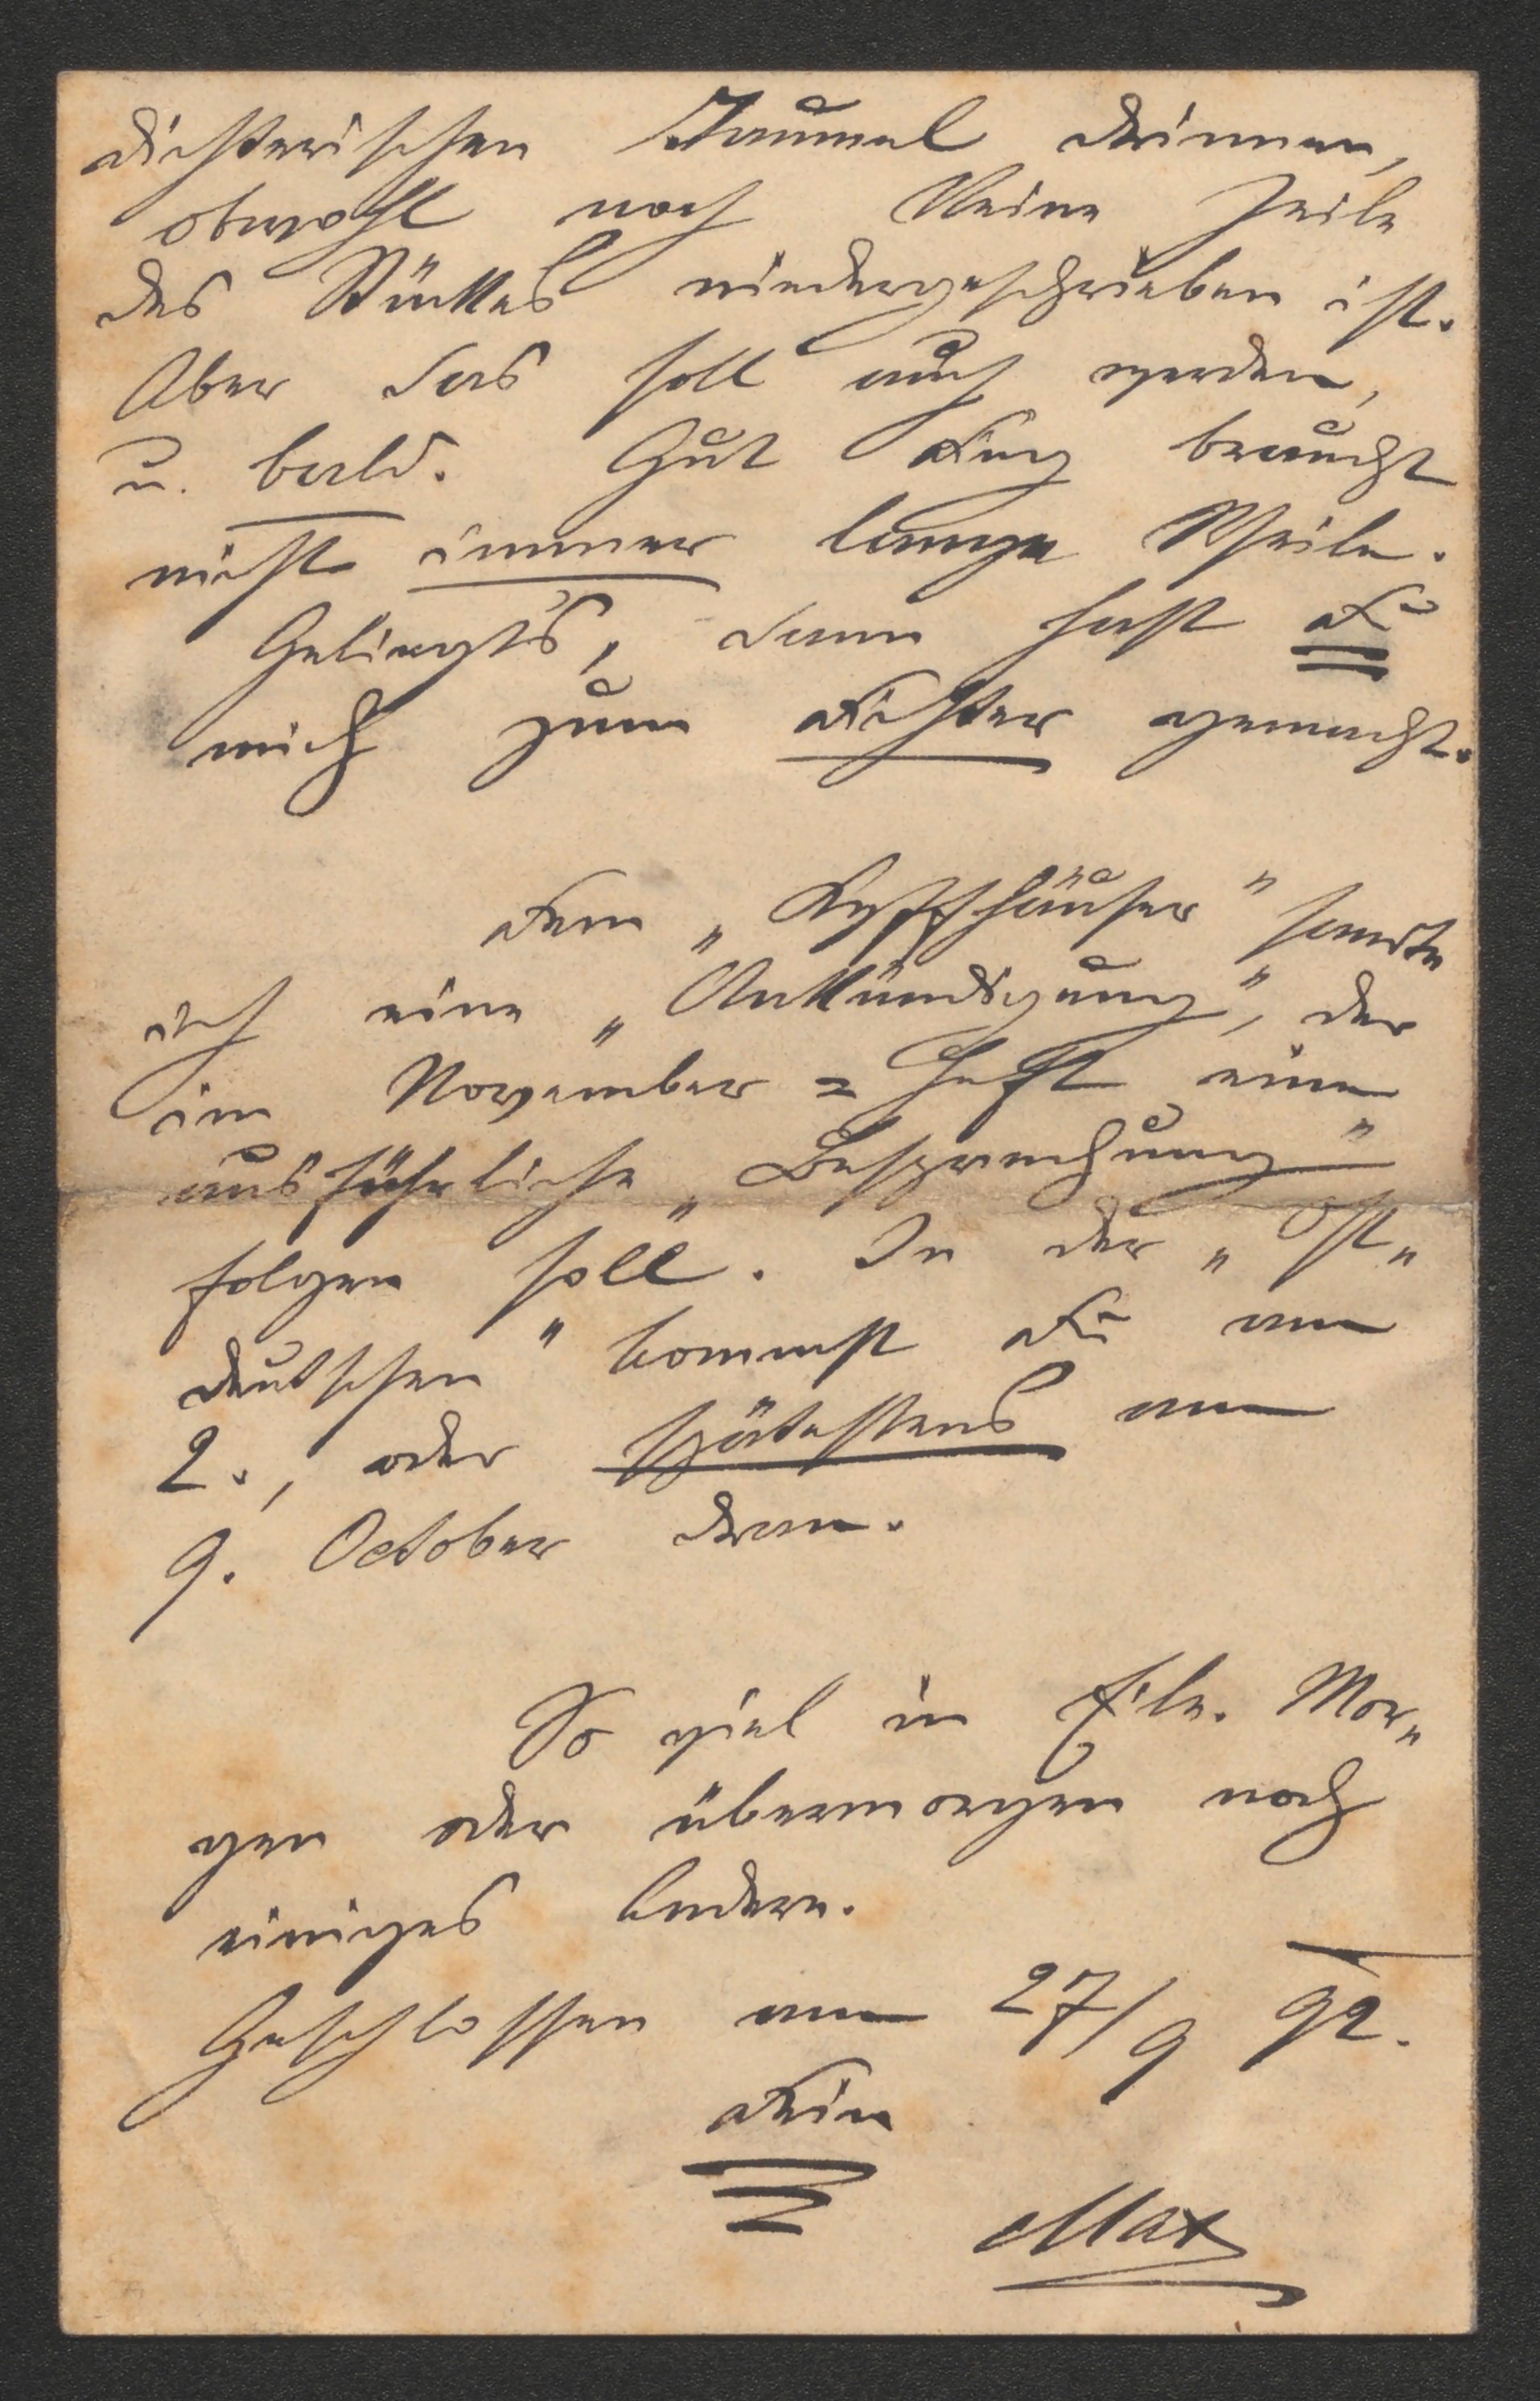 dichterischen Taumel drinnen,
obwohl noch keine Zeile
des Stückes niedergeschrieben ist.
Aber das soll auch werden,
u. bald. Gut Ding braucht
nicht immer lange Weile.
Gelingt's, dann hast Du
mich zum Dichter gemacht.
Dem „Kyffhäuser" sandte
ich eine „Ankündigung", der
im November=Heft eine
ausführliche „Besprechung"
folgen soll. In der „Ost-
deutschen" kommst Du am
2., oder spätestens am
9. October dran.
So viel in Eile. Mor-
gen oder übermorgen noch
einiges Andere.
Geschlossen am 27/9 92.
Dein
Max